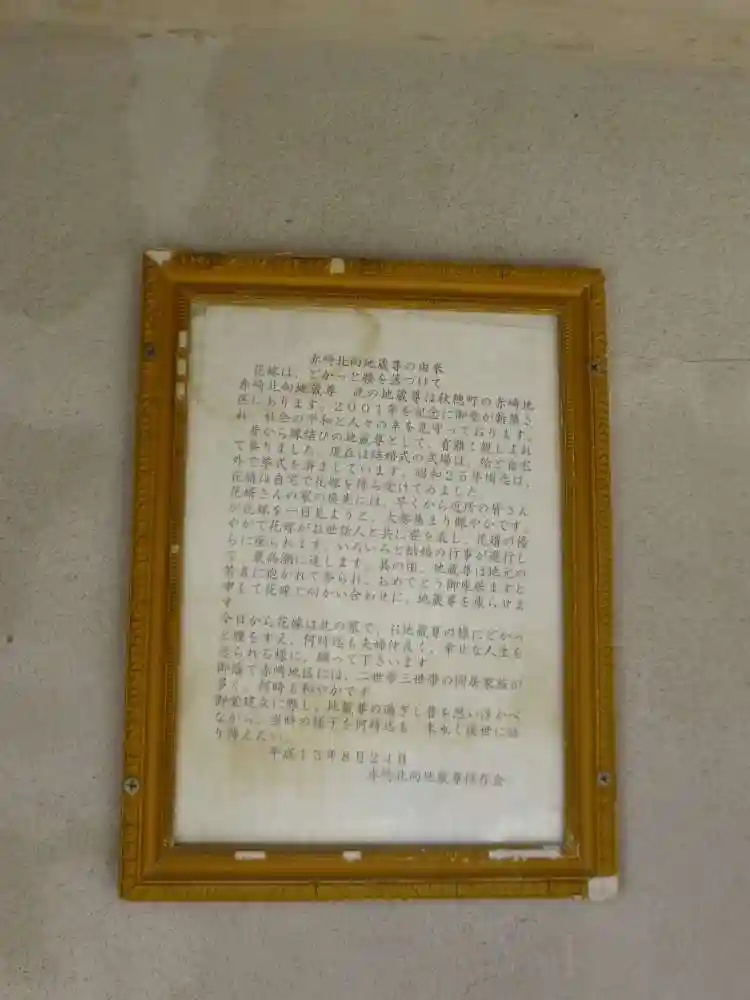 赤崎北向地蔵尊の由来
花嫁は、どかっと腰を落づけて
赤崎北向地蔵尊 此の地蔵尊は秋穂町の赤崎地
区にあります。2001年を記念に御堂が新築さ
れ、社会の平和と人々の幸を見守っております。
昔から縁結びの地蔵尊として、有難く親しまれ
て参りました。現在は結婚式の式場は、殆ど自宅
外で挙式を済ましています。昭和25年頃迄は、
花婿は自宅で花嫁を待ち受けてゐました
花婿さんの家の縁先には、早くから近所の皆さん
が花嫁を一目見ようと、大勢集まり賑やかです。
やがて花嫁がお世話人と共に姿を表し、花婿が傍
らに座られます。いろいろと結婚の行事が進行し
て、最高潮に達します。其の国、地蔵尊は地元の
若者に抱かれて参られ、おめでとう御座居ますと
申して花嫁と向かい合わせに、地蔵尊を座らせま
す
今日から花嫁は此の家で、お地蔵尊の様にどかっ
と腰をすえ、何時迄も夫婦仲良く、幸せな人生を
送られる様に、願って下さいます
御蔭で赤崎地区には、二世帯三世帯の同居家族が
多く、何時も和やかです
御堂建立に際し、地蔵尊の過ぎし昔を思い浮かべ
ながら、当時の様子を何時迄も 末永く後世に語
り傳えたい。
平成13年8月24日
赤崎北向地蔵尊保存会